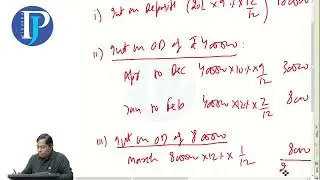 i) Int on Deposits (20L × 9% × 12/12) 180000
ii) Int on OD of ₹ 400000
Apr to Dec 400000 × 10% × 9/12 30000
Jan to Feb 400000 × 12% × 2/12 8000
iii) Int on OD of 800000
March 800000 × 12% × 1/12 8000